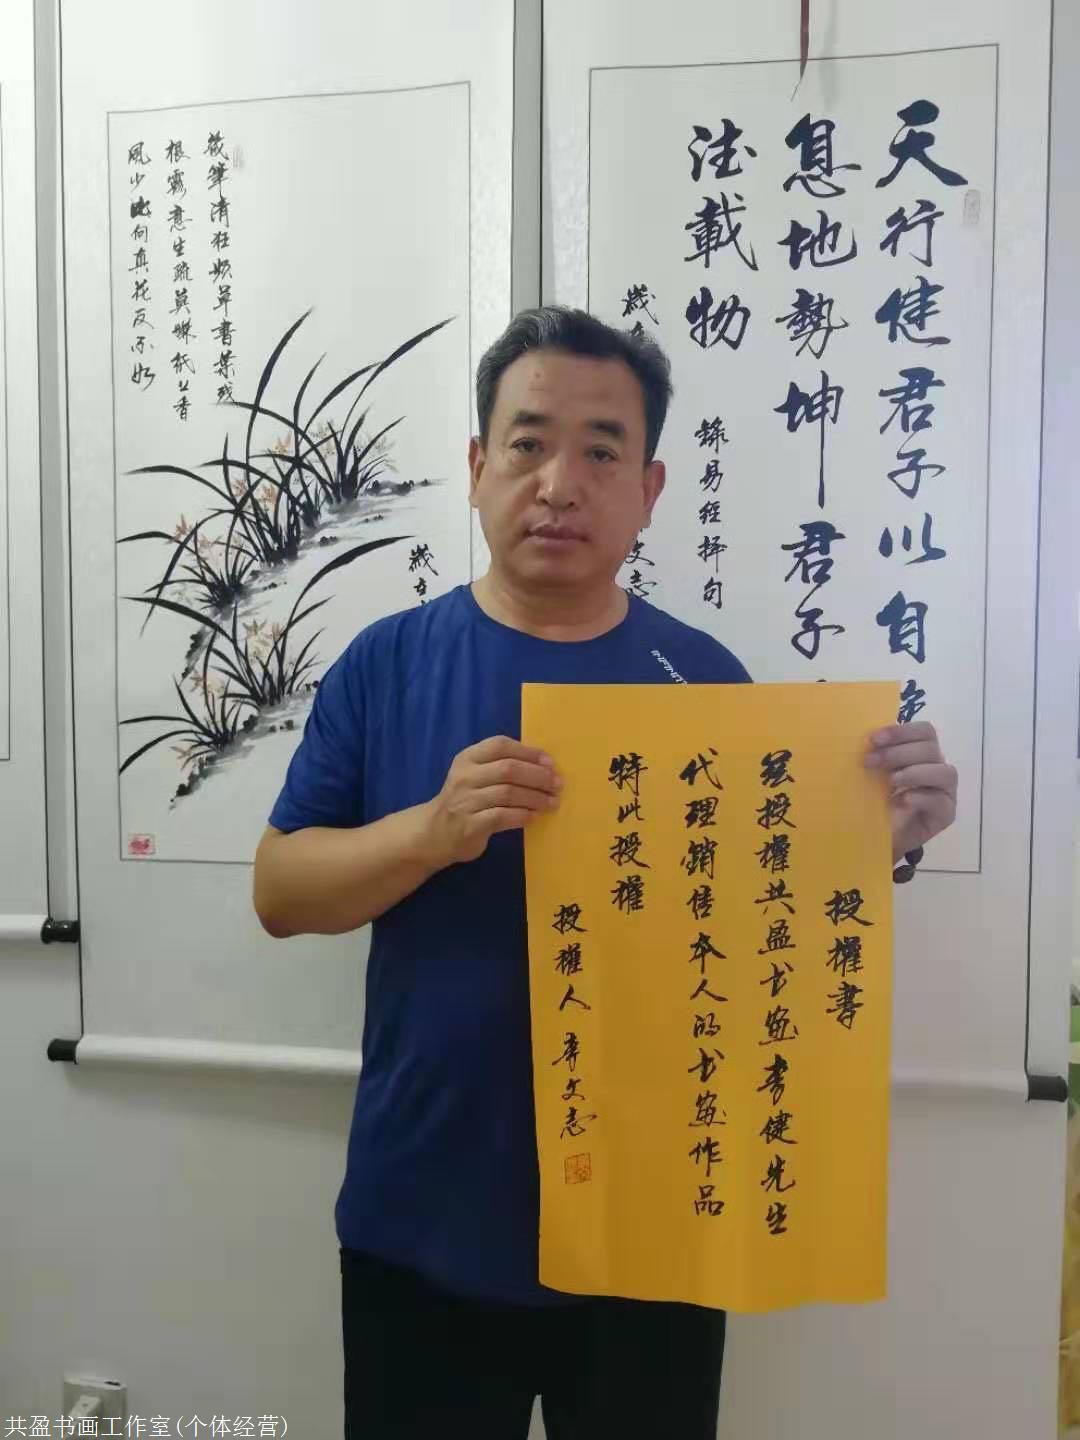 天行健君子以自
息地勢坤君子
法載物
錄易經擇句
歲
文志
根露意生疏莫嫌紙上香
風少
何真花反不如
歲在
INFINIT
授權書
茲授權共盈书画李健先生
代理銷售本人的书画作品
特此授權
授權人 李文志
共盈书画工作室(个体经营)